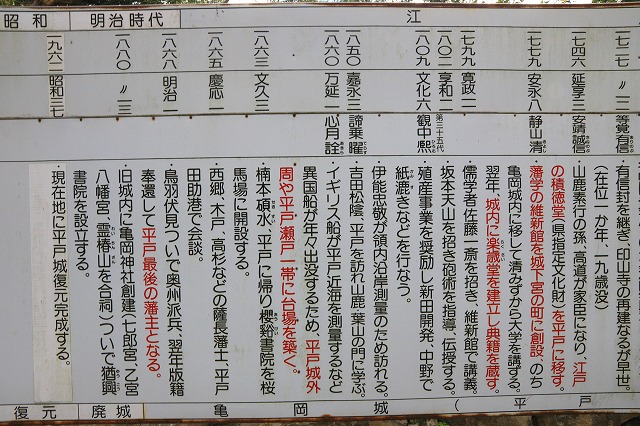 江
明治時代
昭和
一七二七
〃一二
等覚有信
・有信封を継ぎ、印山寺の再建なるが早世。
(在位一か年、一九歳没)
一七四六
延享三
安靖誠信
・山鹿素行の孫、高道が家臣になり、江戸
の積徳堂(県指定文化財)を平戸に移す。
一七七九
安永八
静山清
・藩学の維新館を城下宮の町に創設、のち
亀岡城内に移して清みずから大学を講ずる。
翌年、城内に楽歳堂を建立し典籍を蔵す。
一七九九
寛政一一
・儒学者佐藤一斎を招き、維新館で講義。
一八〇二
享和二
・坂本天山を招き砲術を指導、伝授する。
一八〇九
文化六
第三十五代
観中熈
・殖産事業を奨励し新田開発、中野で
紙漉きなどを行なう。
・伊能忠敬が領内沿岸測量のため訪れる。
一八五〇
嘉永三
諦乗曜
・吉田松陰、平戸を訪れ山鹿、葉山の門に学ぶ。
一八六〇
万延一
心月詮
・イギリス船が平戸近海を測量するなど
異国船が年々出没するため、平戸城外
周や平戸瀬戸一帯に台場を築く。
一八六三
文久三
・楠本碩水、平戸に帰り櫻谿書院を桜
馬場に開設する。
一八六五
慶応一
・西郷、木戸、高杉などの薩長藩士、平戸
田助港で会談。
一八六八
明治一
・鳥羽伏見ついで奥州派兵、翌年版籍
奉還して平戸最後の藩主となる。
一八八〇
〃一三
・旧城内に亀岡神社創建(七郎宮、乙宮
八幡宮、霊椿山を合祀)ついで猶興
書院を設立する。
一九六二
昭和三七
・現在地に平戸城復元完成する。
亀岡城(平戸
廃城
復元